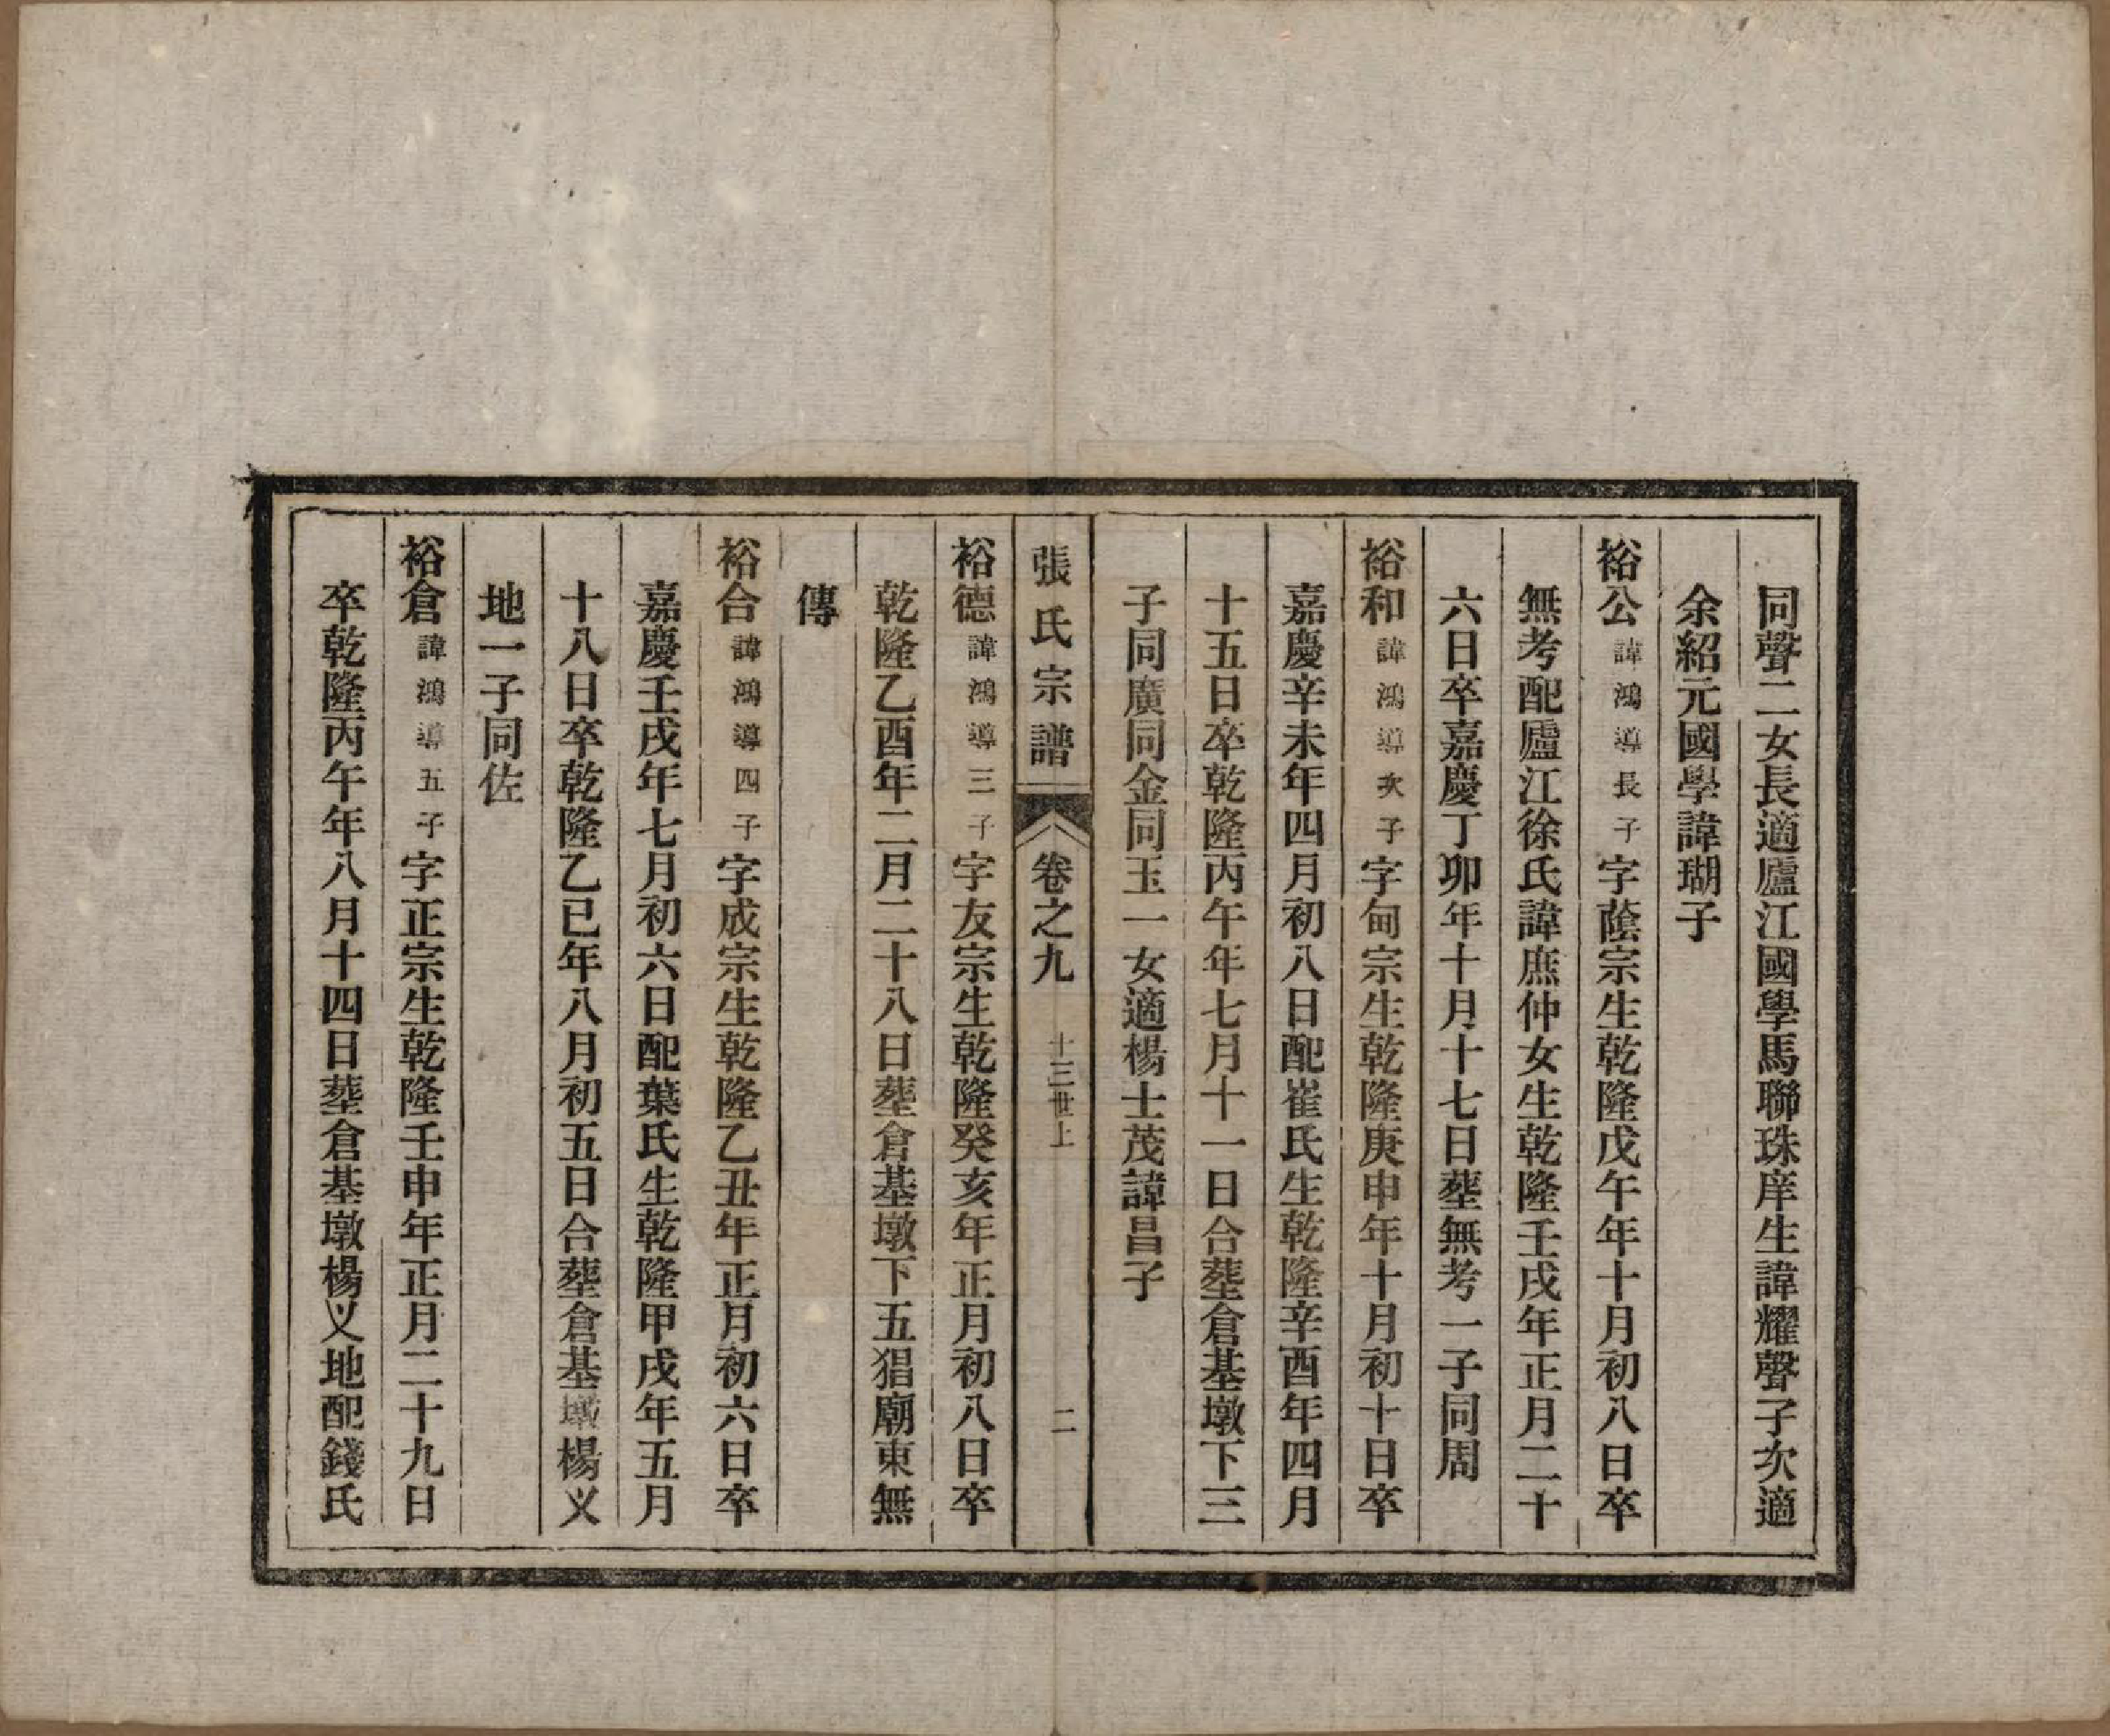 同聲二女長適廬江國學馬聯珠庠生諱耀聲子次適
余紹元國學諱瑚子
裕公諱鴻導長子字蔭宗生乾隆戊午年十月初八日卒
無考配廬江徐氏諱庶仲女生乾隆壬戌年正月二十
六日卒嘉慶丁卯年十月十七日塟無考一子同周
裕和諱鴻導次子字甸宗生乾隆庚申年十月初十日卒
嘉慶辛未年四月初八日配崔氏生乾隆辛酉年四月
十五日卒乾隆丙午年七月十一日合塟倉基墩下三
子同廣同金同玉一女適楊士茂諱昌子
張氏宗譜 卷之九 十三世上 二
裕德諱鴻導三子字友宗生乾隆癸亥年正月初八日卒
乾隆乙酉年二月二十八日塟倉基墩下五猖廟東無
傳
裕合諱鴻導四子字成宗生乾隆乙丑年正月初六日卒
嘉慶壬戌年七月初六日配葉氏生乾隆甲戌年五月
十八日卒乾隆乙巳年八月初五日合塟倉基墩楊义
地一子同佐
裕倉諱鴻導五子字正宗生乾隆壬申年正月二十九日
卒乾隆丙午年八月十四日塟倉基墩楊义地配錢氏